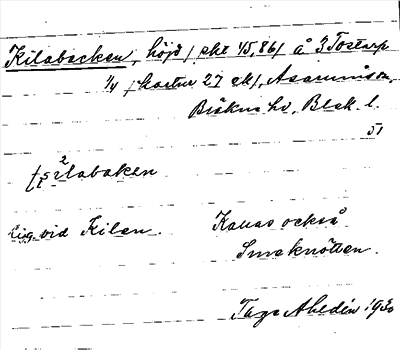 Kilabacken, höjd / skt 45,86/ å 3 Tostarp
1/4 / kartur 27 ek/, Asarums sn,
Bräkne hd, Blek. l.
51
Lig. vid Kilen.
Kallas också
Smeknötten.
Tage Ahldén 1930